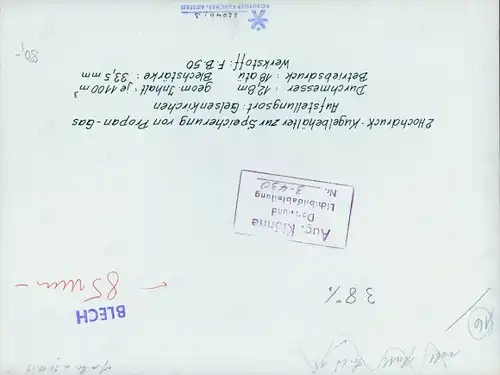 2 Hochdruck-Kugelbehälter zur Speicherung von Propan-Gas
Aufstellungsort: Gelsenkirchen
Durchmesser: 12,8m geom. Inhalt: je 1100 m³
Betriebsdruck: 18 atü Blechstärke: 33,5 mm
Werkstoff: F.B.50
80,-
Aug. Klönne
Dortmund
Lichtbildabteilung
Nr. 3-430
85 mm
BLECH
38%
(16)